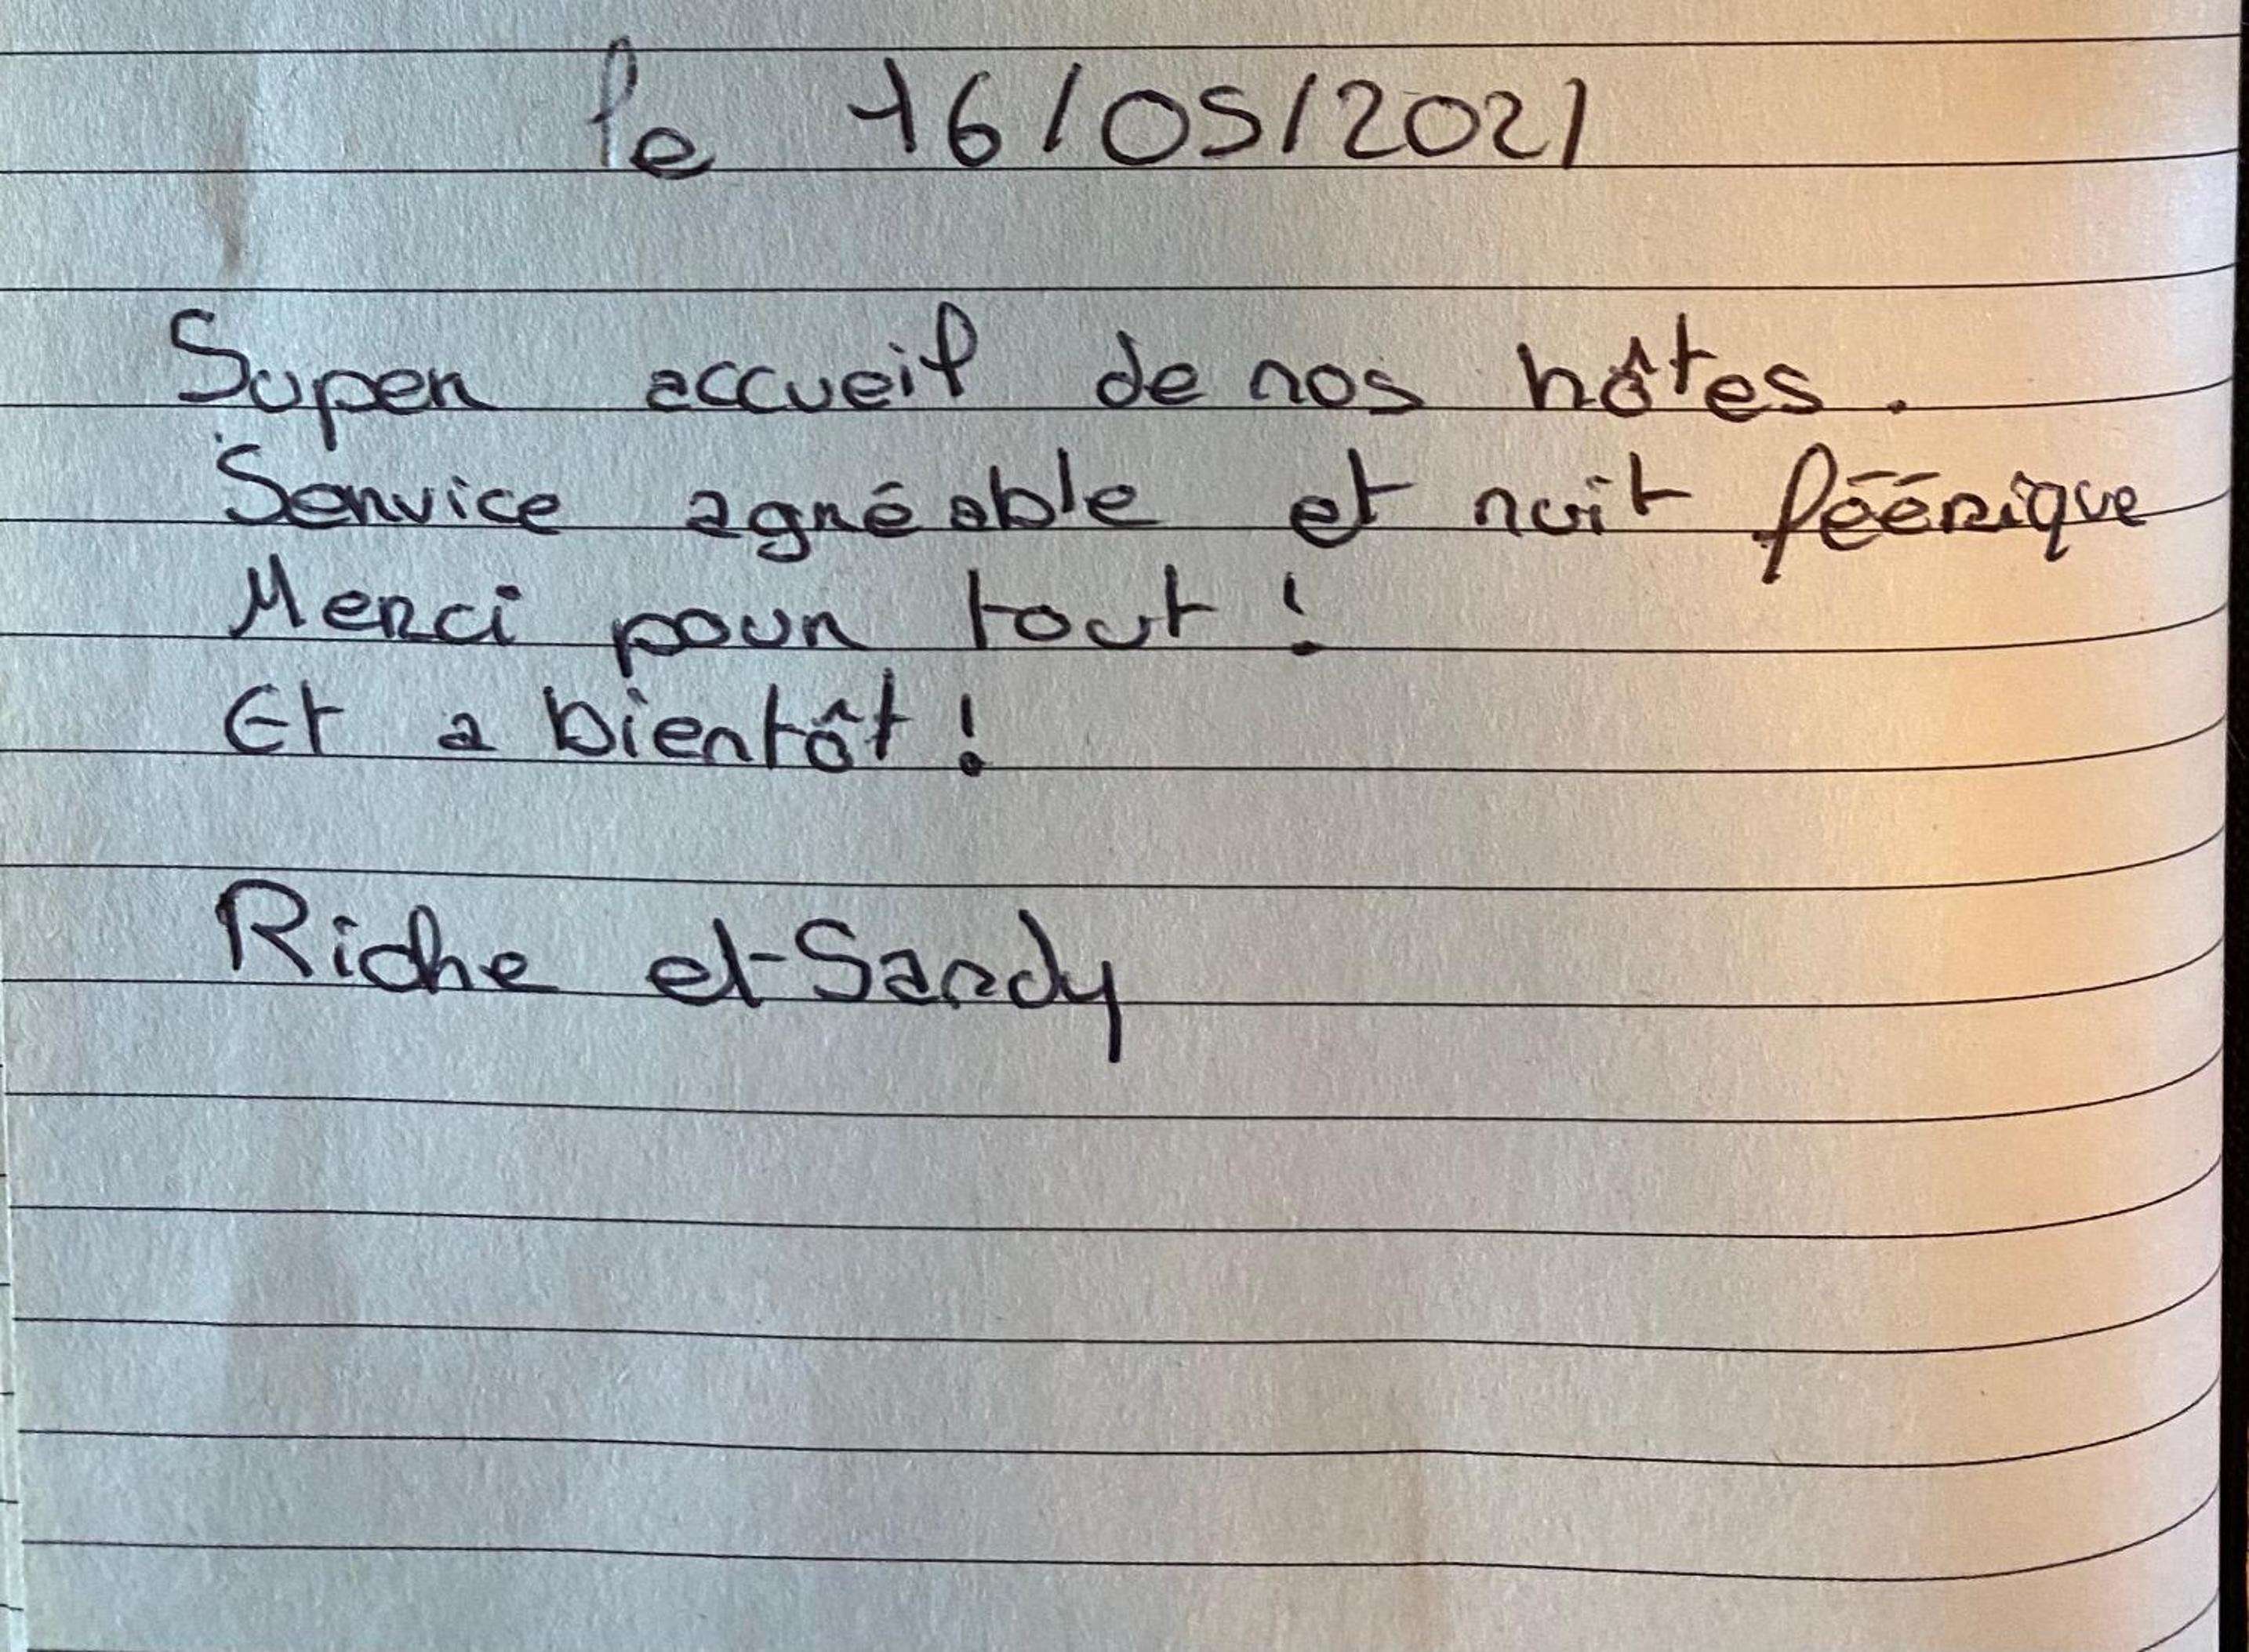 le 16/05/2021
Super accueil de nos hôtes.
Service agréable et nuit féérique
Merci pour tout !
Et a bientôt !
Riche et Sandy